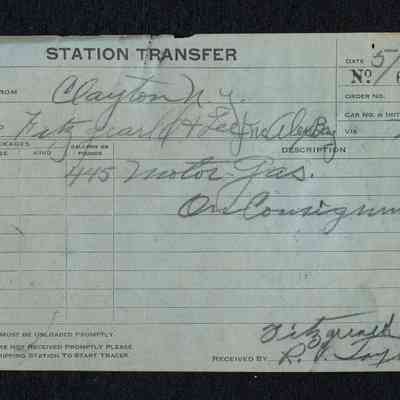 STATION TRANSFER
DATE 5/
No
FROM Clayton N. Y.
ORDER NO.
Fitzgerald & Lee Inc Alex Bay
CAR NO. & INIT
VIA
PACKAGES
KIND
GALLONS OR POUNDS
DESCRIPTION
445 Motor Gas.
On Consignm
MUST BE UNLOADED PROMPTLY.
ARE NOT RECEIVED PROMPTLY PLEASE
SHIPPING STATION TO START TRACER.
RECEIVED BY
Fitzgerald
R. J.